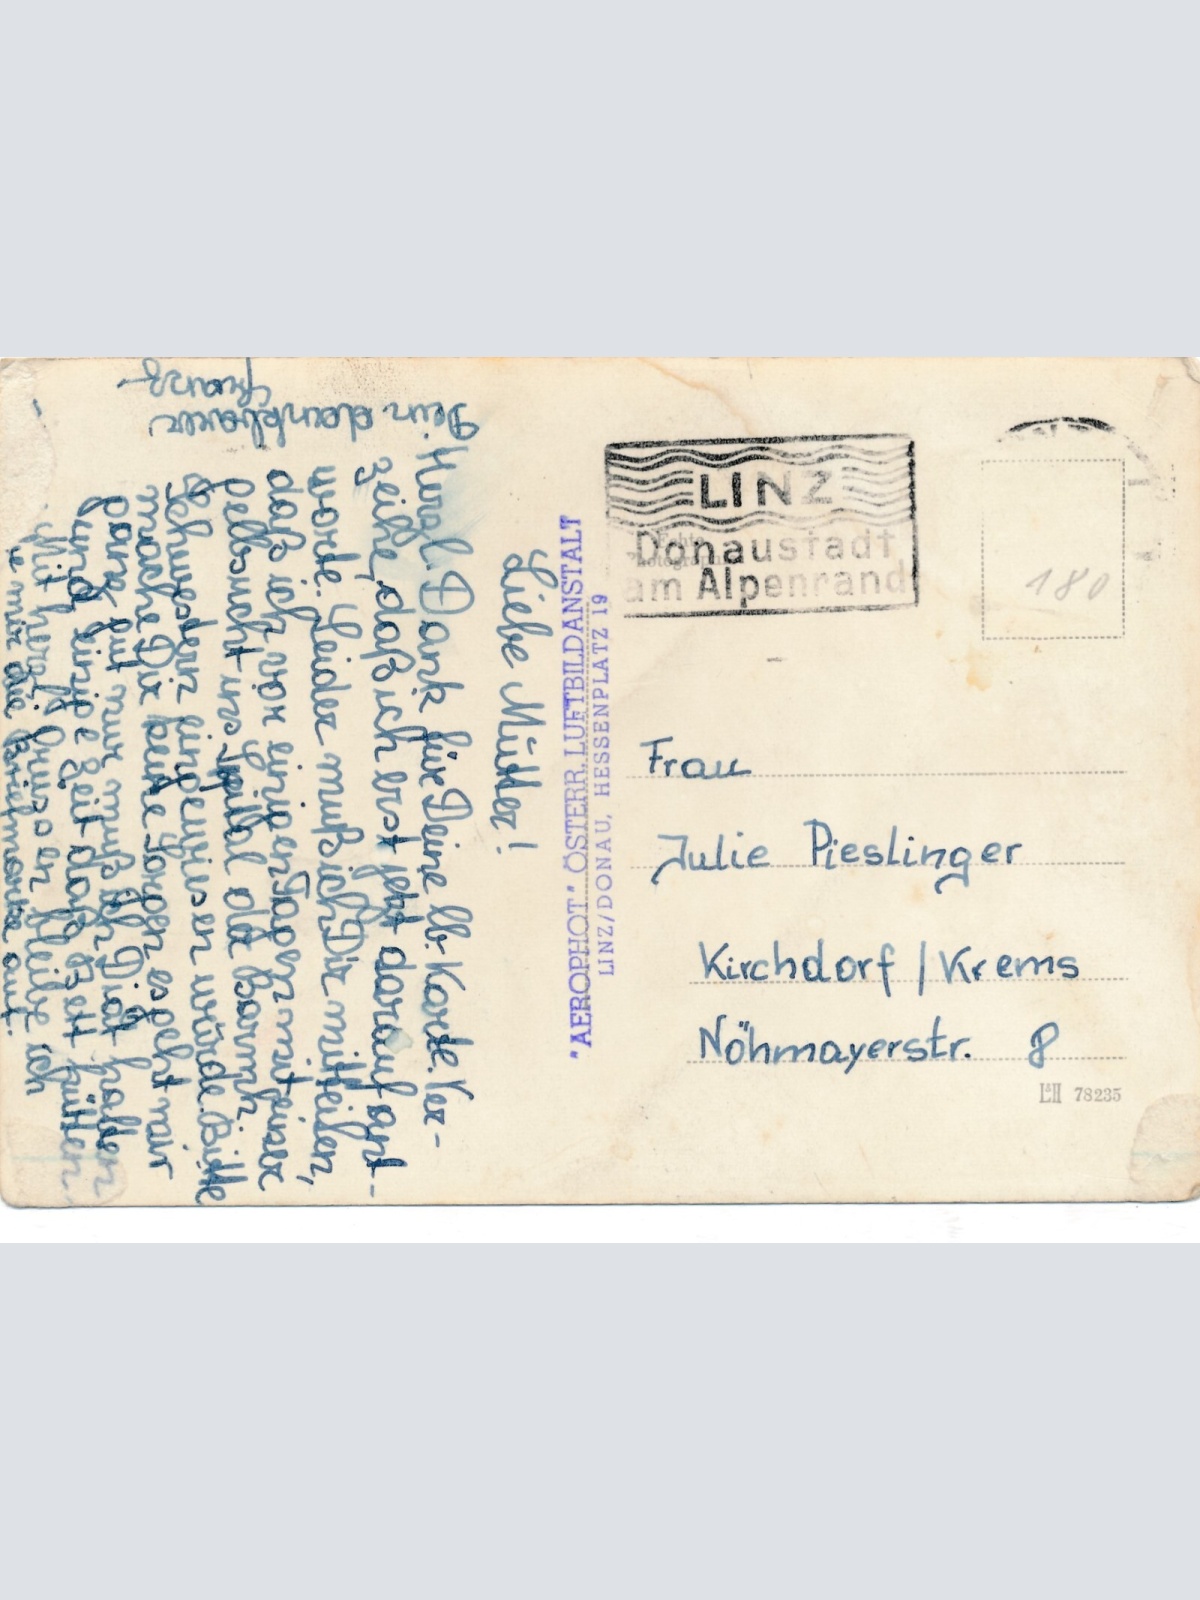 Liebe Mutter!
Herzl. Dank für Deine lb. Karte. Ver-
zeihe, daß ich erst jetzt darauf ant-
worte. Leider muß ich Dir mitteilen,
daß ich vor einigen Tagen mit einer
Gelbsucht ins Spital der Barmh.
Schwestern eingewiesen wurde. Bitte
mache Dir keine Sorgen es geht mir
ganz gut nur muß ich Diät halten
und einige Zeit das Bett hüten.
Mit herzl. Grüssen bleibe ich
Dein dankbarer
Franz
mir die Briefmarke auf.
"AEROPHOT" ÖSTERR. LUFTBILDANSTALT
LINZ/DONAU, HESSENPLATZ 19
LINZ
Donaustadt
am Alpenrand
Echte
180
Frau
Julie Pieslinger
Kirchdorf / Krems
Nöhmayerstr. 8
78235